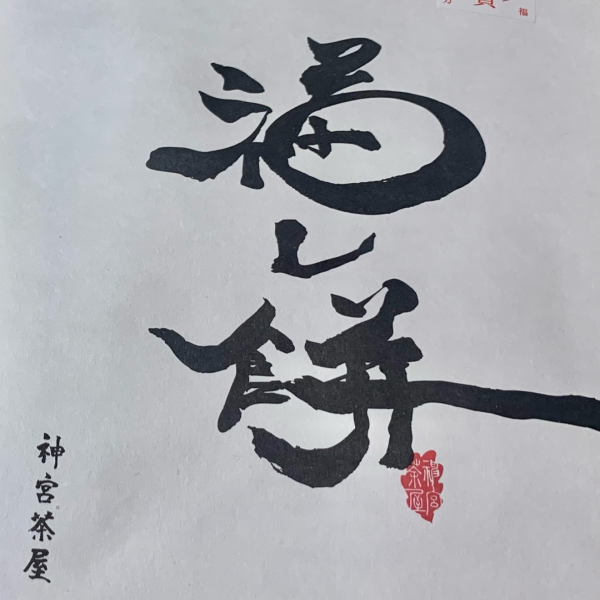 福
し
餅
神宮茶屋
神宮
茶屋
福